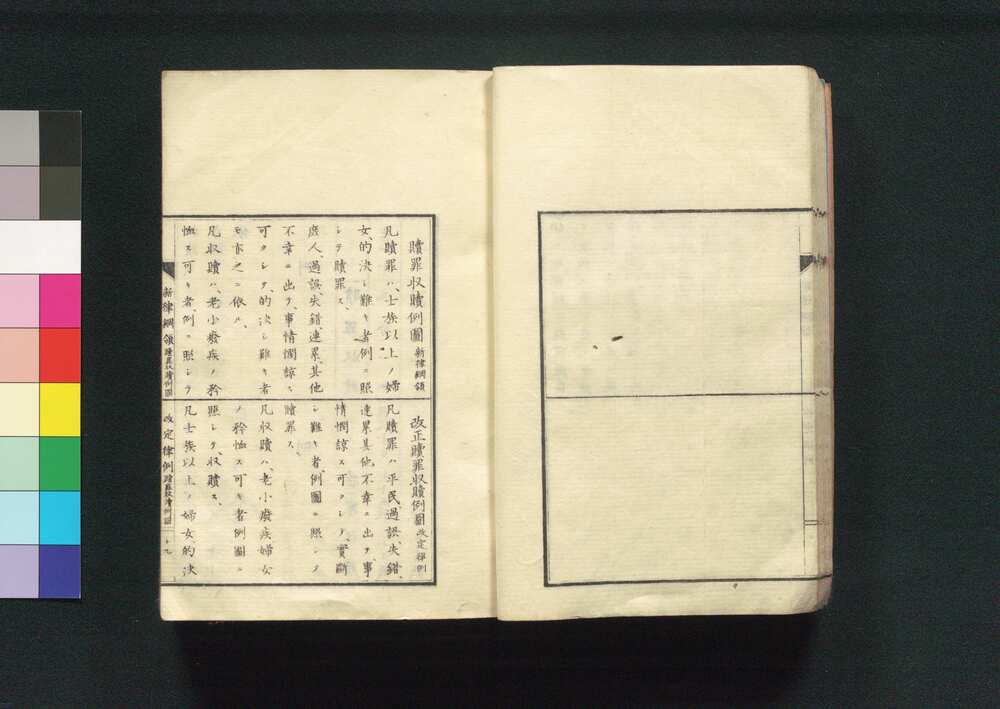 贖罪収贖例圖 新律綱領
凡贖罪ハ、士族以上ノ婦
女、的決シ難キ者、例ニ照
シテ贖罪ス、
庶人、過誤、失錯、連累、其他
不幸ニ出テ、事情憫諒ス
可クシテ、的決シ難キ者
モ亦之ニ依ル、
凡収贖ハ、老小廢疾ノ矜
恤ス可キ者、例ニ照シテ
新律綱領 贖罪収贖例圖
改正贖罪収贖例圖 改定律例
凡贖罪ハ平民、過誤、失錯、
連累其他不幸ニ出テ、事
情憫諒ス可クシテ、實斷
シ難キ者、例圖ニ照シテ
贖罪ス、
凡収贖ハ、老小廢疾婦女
ノ矜恤ス可キ者例圖ニ
照シテ、収贖ス、
凡士族以上ノ婦女、的決
改定律例 贖罪収贖例圖
十九